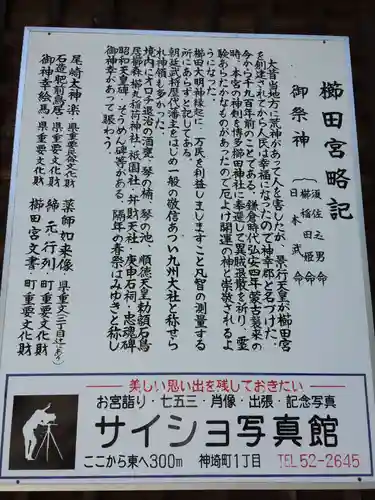 櫛田宮略記
御祭神
須佐之男命
櫛稲田姫命
日本武命
大昔当地方に荒神があって人を害したが、景行天皇が櫛田宮
を創建されてから人民は幸福になったので神幸郡と名づけた。
今から千九百年前のことである。鎌倉時代弘安四年蒙古襲来の
時、本宮の神剣を博多櫛田神社に奉遷して異賊退散を祈り、霊
験あらたかなものがあったので厄よけ開運の神と崇敬されるよ
うになった。
櫛田大明神縁起に、万民を利益しまします こと凡智の測量する
所にあらずと記してある。
朝廷武将歴代藩主をはじめ一般の敬信あつい九州大社と称せら
れ神領も多かった。
境内にオロチ退治の酒甕、琴の楠、琴の池、順徳天皇勅額石鳥
居櫛森、櫛丸稲荷神社、祇園社、弁財天社、庚申石祠、忠魂碑
昭和天皇碑、そうめん碑等がある。隔年の春祭はみゆきと称し
御神幸があって賑わう。
尾崎太神楽 県重要文化財
石造肥前鳥居 県重要文化財
御神幸絵馬 県重要文化財
薬師如来像 県重文(三丁目辻にあり)
綿元行列 町重要文化財
櫛田宮文書 町重要文化財
美しい思い出を残しておきたい
お宮詣り・七五三・肖像・出張・記念写真
サイショ写真館
ここから東へ300m 神埼町1丁目 TEL52-2645